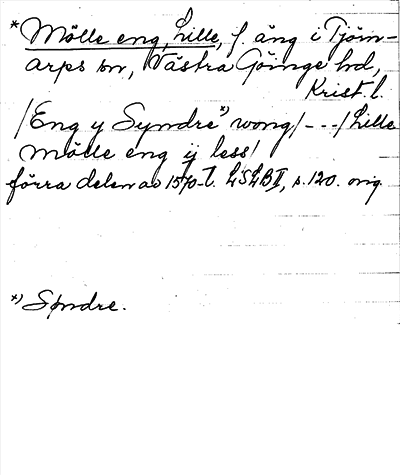 *Mölle eng, Lille, f. äng i Tjörn-
arps sn, Västra Göinge hd,
Krist. l.
/Eng y Syndre*) wong/ - - - /Lille
Mölle eng ij less/
förra delen av 1570-t. LSLB II, s. 120. orig.
*) Søndre.